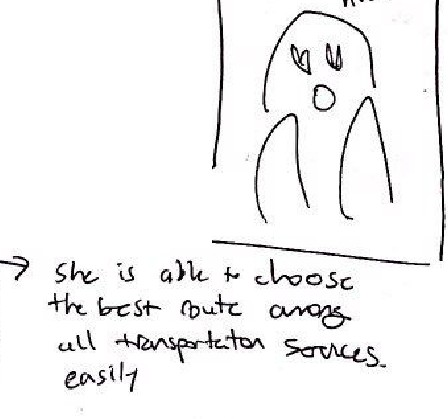 → she is able to choose
the best route among
all transportation sources.
easily